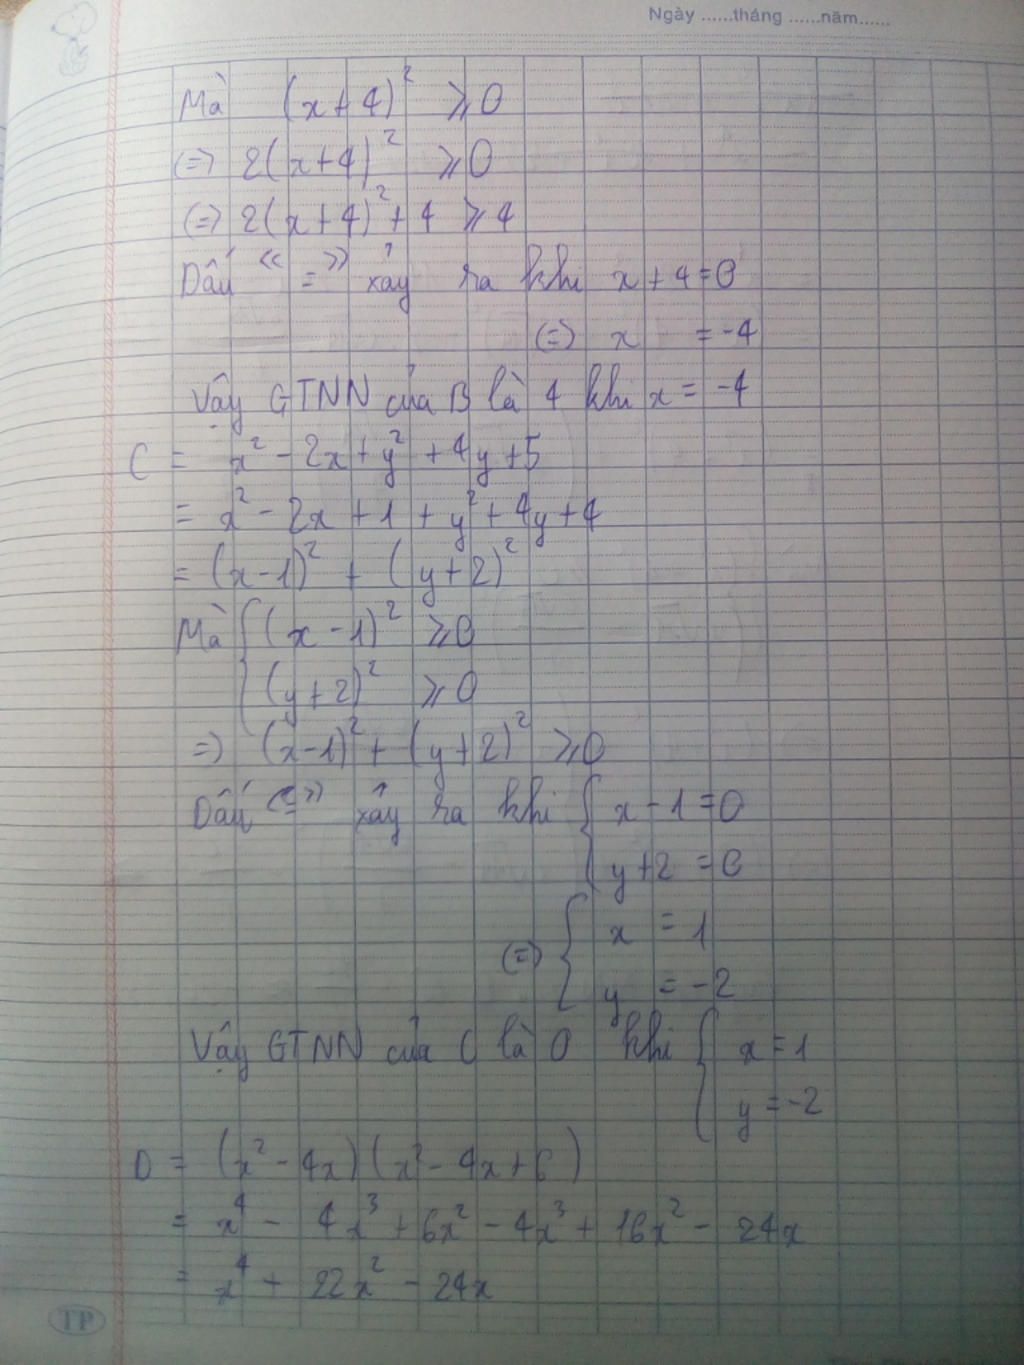 Ngày ......tháng ......năm......
Mà (x+4)² ⩾ 0
(=) 2(x+4)² ⩾ 0
(=) 2(x+4)² + 4 ⩾ 4
Dấu « = » xảy ra khi x + 4 = 0
(=) x = -4
Vậy GTNN của B là 4 khi x = -4
C = x² - 2x + y² + 4y + 5
= x² - 2x + 1 + y² + 4y + 4
= (x-1)² + (y+2)²
Mà { (x - 1)² ⩾ 0
(y+2)² ⩾ 0
=) (x-1)² + (y+2)² ⩾ 0
Dấu « = » xảy ra khi { x - 1 = 0
y+2 = 0
(=) { x = 1
y = -2
Vậy GTNN của C là 0 khi { x = 1
y = -2
D = (x² - 4x)(x² - 4x + 6)
= x⁴ - 4x³ + 6x² - 4x³ + 16x² - 24x
= x⁴ + 22x² - 24x
TP